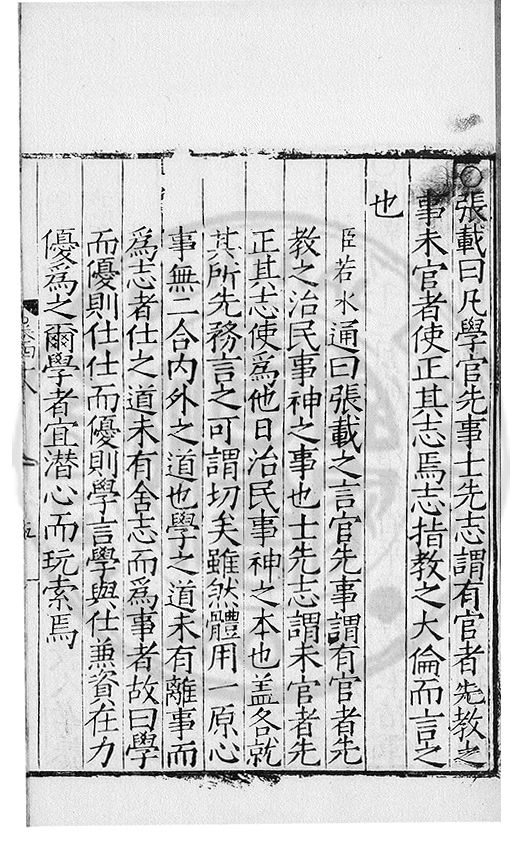 ○張載曰凡學官先事士先志謂有官者先教之
事未官者使正其志焉志指教之大倫而言之
也
臣若水通曰張載之言官先事謂有官者先
教之治民事神之事也士先志謂未官者先
正其志使爲他日治民事神之本也盖各就
其所先務言之可謂切矣雖然體用一原心
事無二合内外之道也學之道未有離事而
爲志者仕之道未有舍志而爲事者故曰學
而優則仕仕而優則學言學與仕兼資在力
優爲之爾學者宜潜心而玩索焉